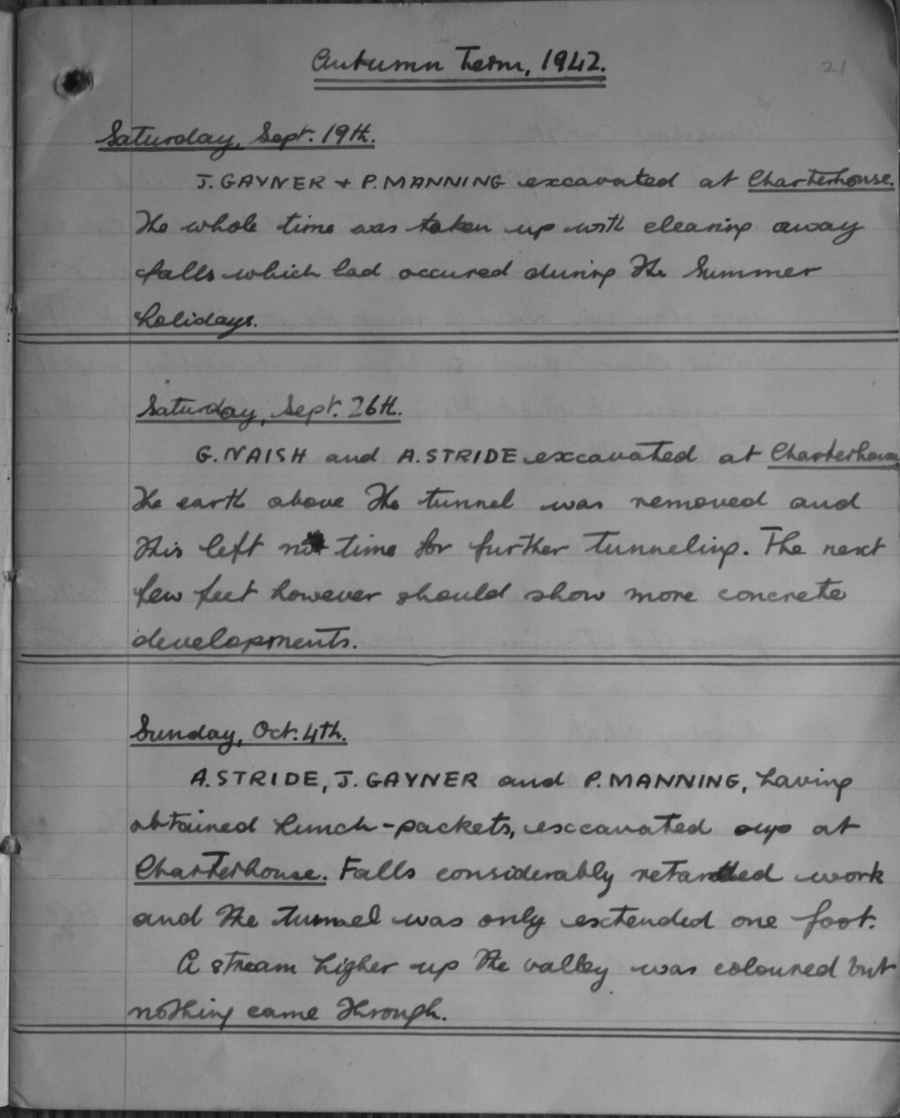 Autumn Term, 1942.
21
Saturday, Sept. 19th.
J. GAYNER + P. MANNING excavated at Charterhouse.
The whole time was taken up with clearing away
falls which had occured during the Summer
holidays.
Saturday, Sept. 26th.
G. NAISH and A. STRIDE excavated at Charterhouse
The earth above the tunnel was removed and
this left no time for further tunneling. The next
few feet however should show more concrete
developments.
Sunday, Oct. 4th.
A. STRIDE, J. GAYNER and P. MANNING, having
obtained lunch-packets, excavated at
Charterhouse. Falls considerably retarded work
and the tunnel was only extended one foot.
A stream higher up the valley was coloured but
nothing came through.